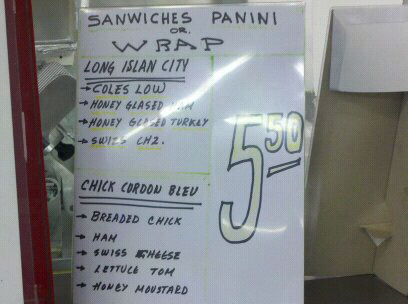 SANWICHES PANINI
OR.
WRAP
LONG ISLAN CITY
→ COLES LOW
→ HONEY GLASED HAM
→ HONEY GLASED TURKEY
→ SWISS CHZ.
5.50
CHICK CORDON BLEU
→ BREADED CHICK
→ HAM
→ SWISS CHEESE
→ LETTUCE TOM
→ HONEY MOUSTARD